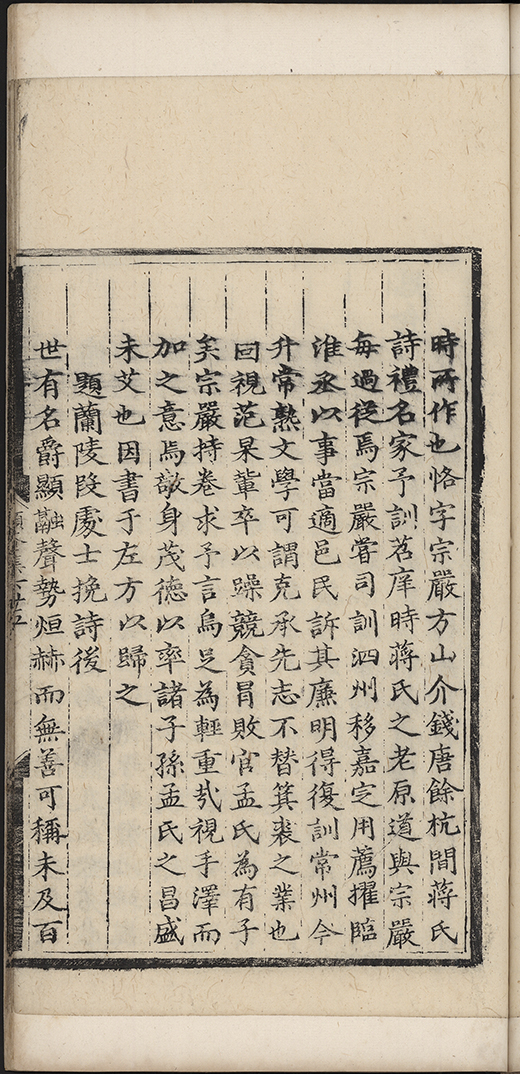 時所作也恪字宗嚴方山介錢唐餘杭間蔣氏
詩禮名家予訓苕庠時蔣氏之老原道與宗嚴
每過從焉宗嚴嘗司訓泗州移嘉定用薦擢臨
淮丞以事當適邑民訴其廉明得復訓常州今
升常熟文學可謂克承先志不替箕裘之業也
回視范杲輩卒以躁競貪冒敗官孟氏為有子
矣宗嚴持卷求予言烏足為輕重㢤視手澤而
加之意焉敬身茂德以率諸子孫孟氏之昌盛
未艾也因書于左方以歸之
題蘭陵段處士挽詩後
世有名爵顯融聲勢烜赫而無善可稱未及百